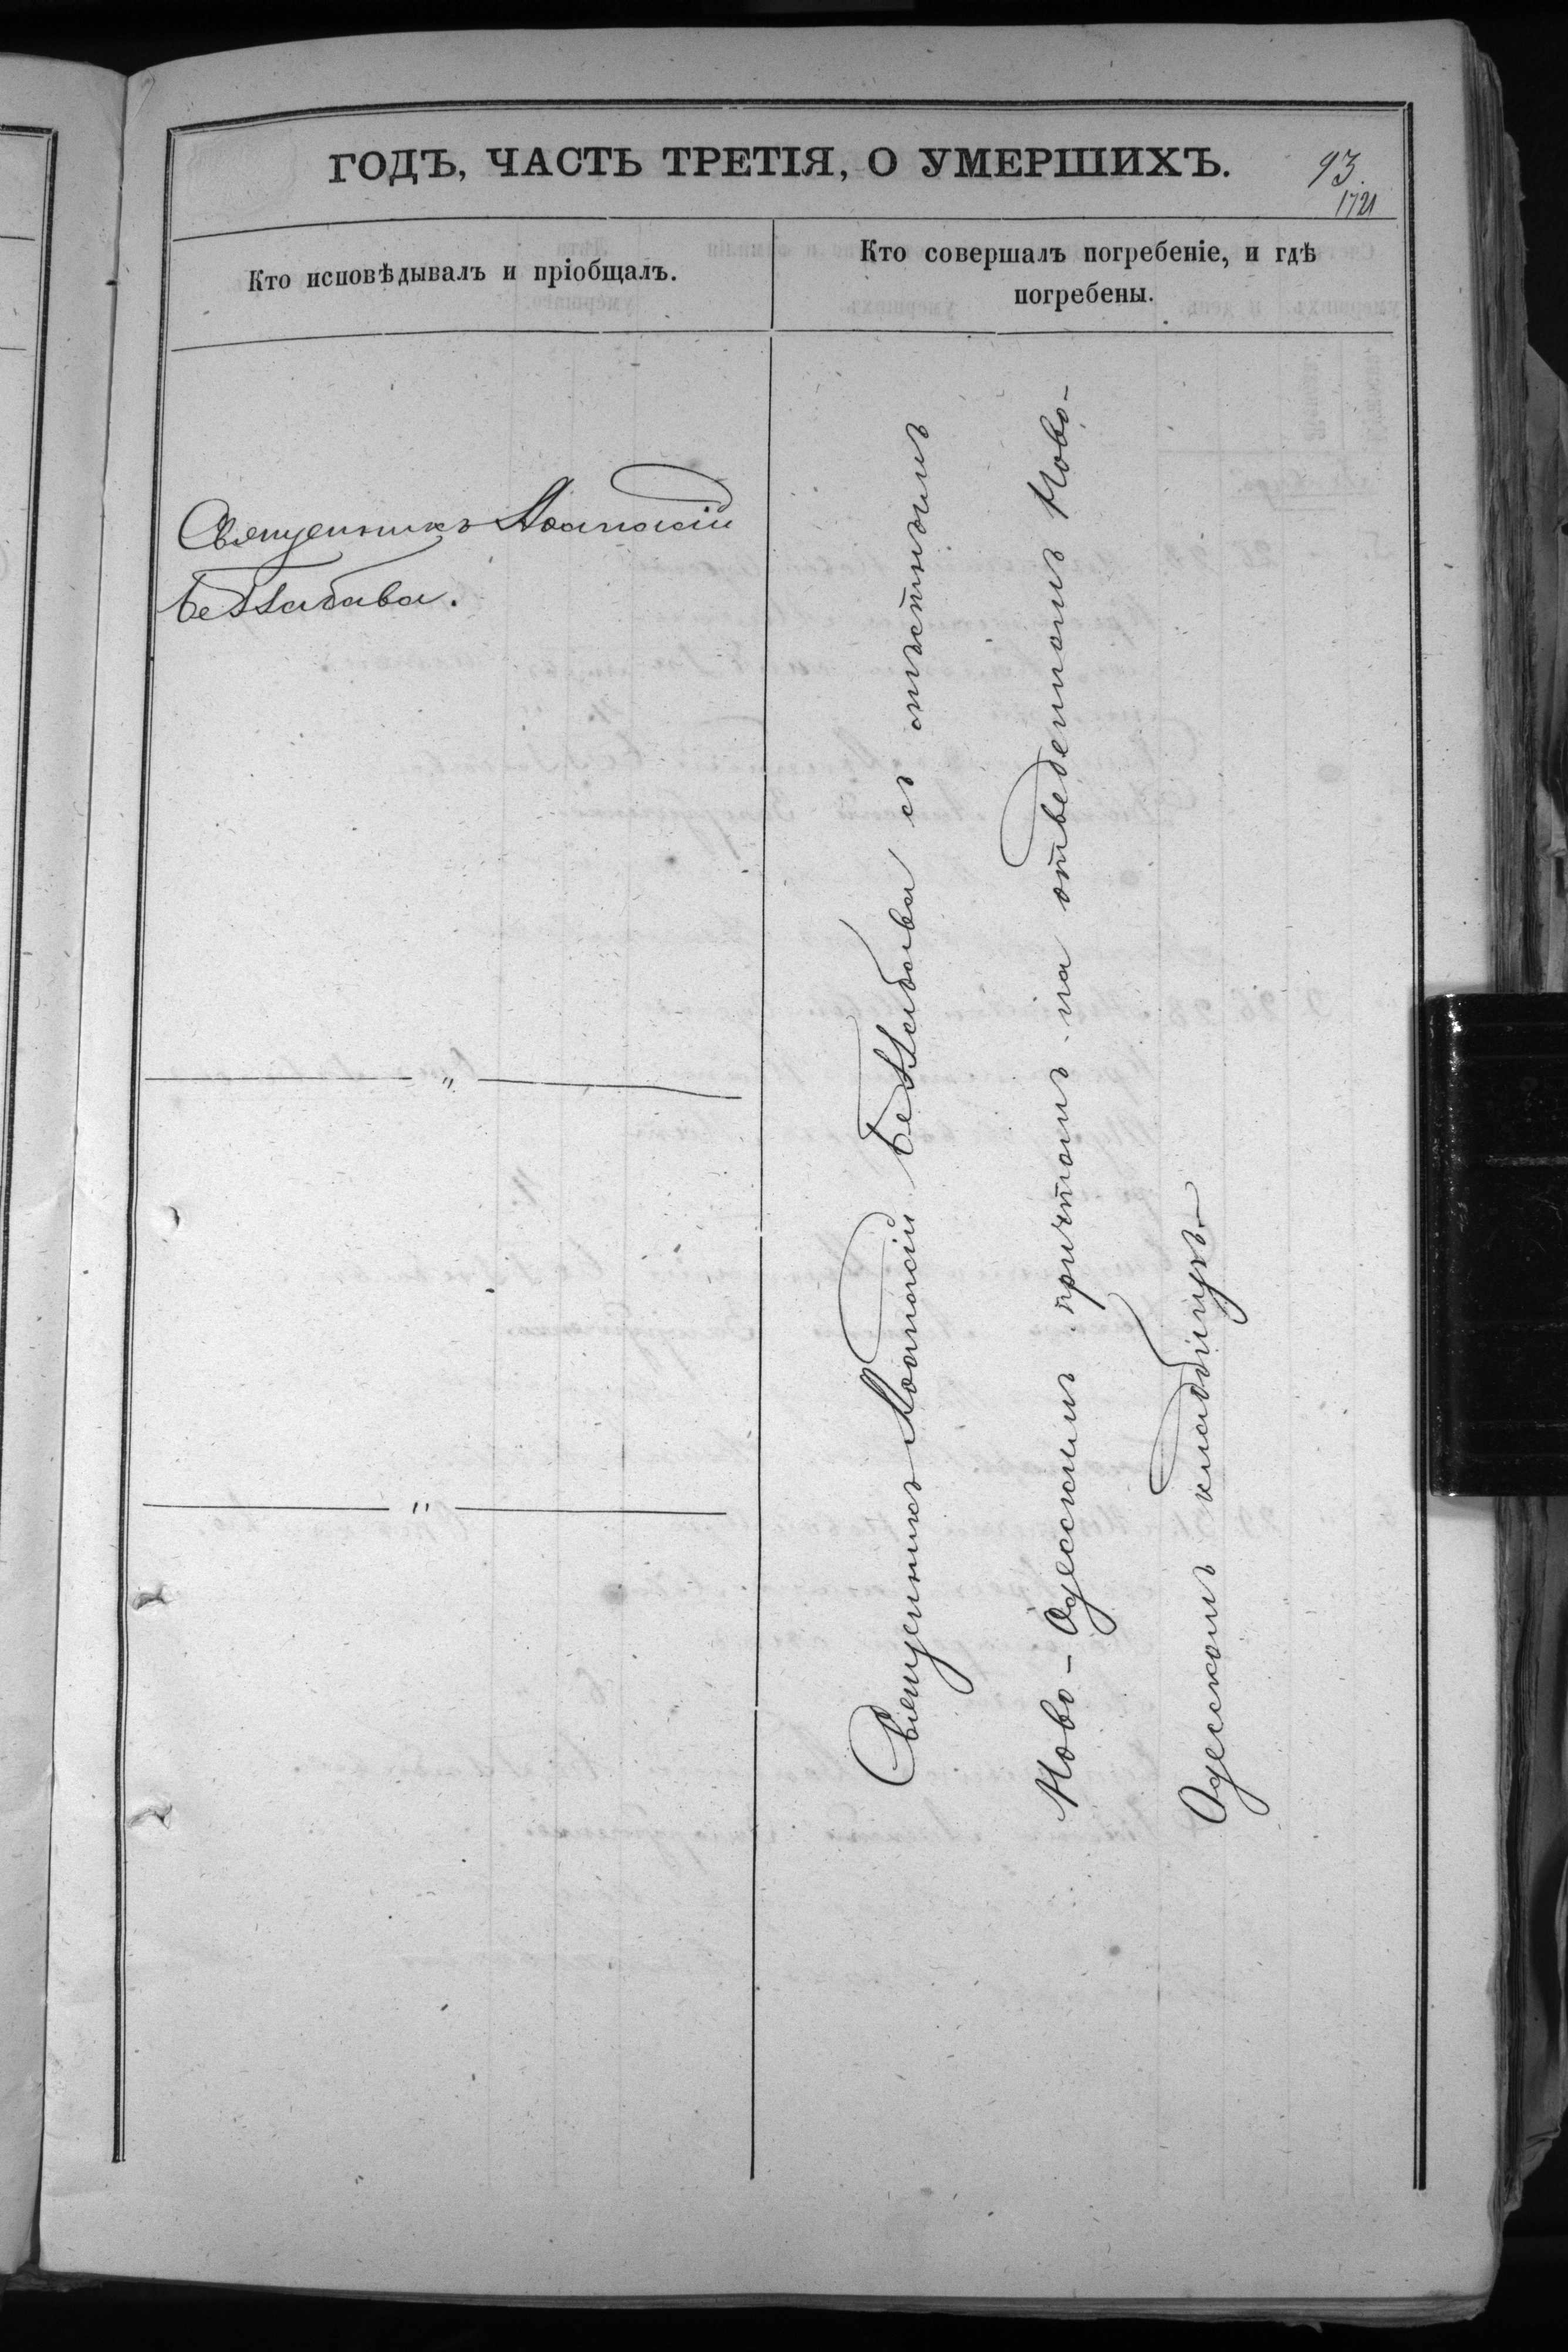 ГОДЪ, ЧАСТЬ ТРЕТІЯ, О УМЕРШИХЪ.
93.
1721
Кто исповѣдывалъ и пріобщалъ.
Кто совершалъ погребеніе, и гдѣ
погребены.
Священникъ Аѳанасій
Беззабава.
"
"
Священникъ Аѳанасій Беззабава съ мѣстнымъ
Ново-Одесскимъ причтомъ на отведенномъ Ново-
Одесскомъ кладбищѣ.